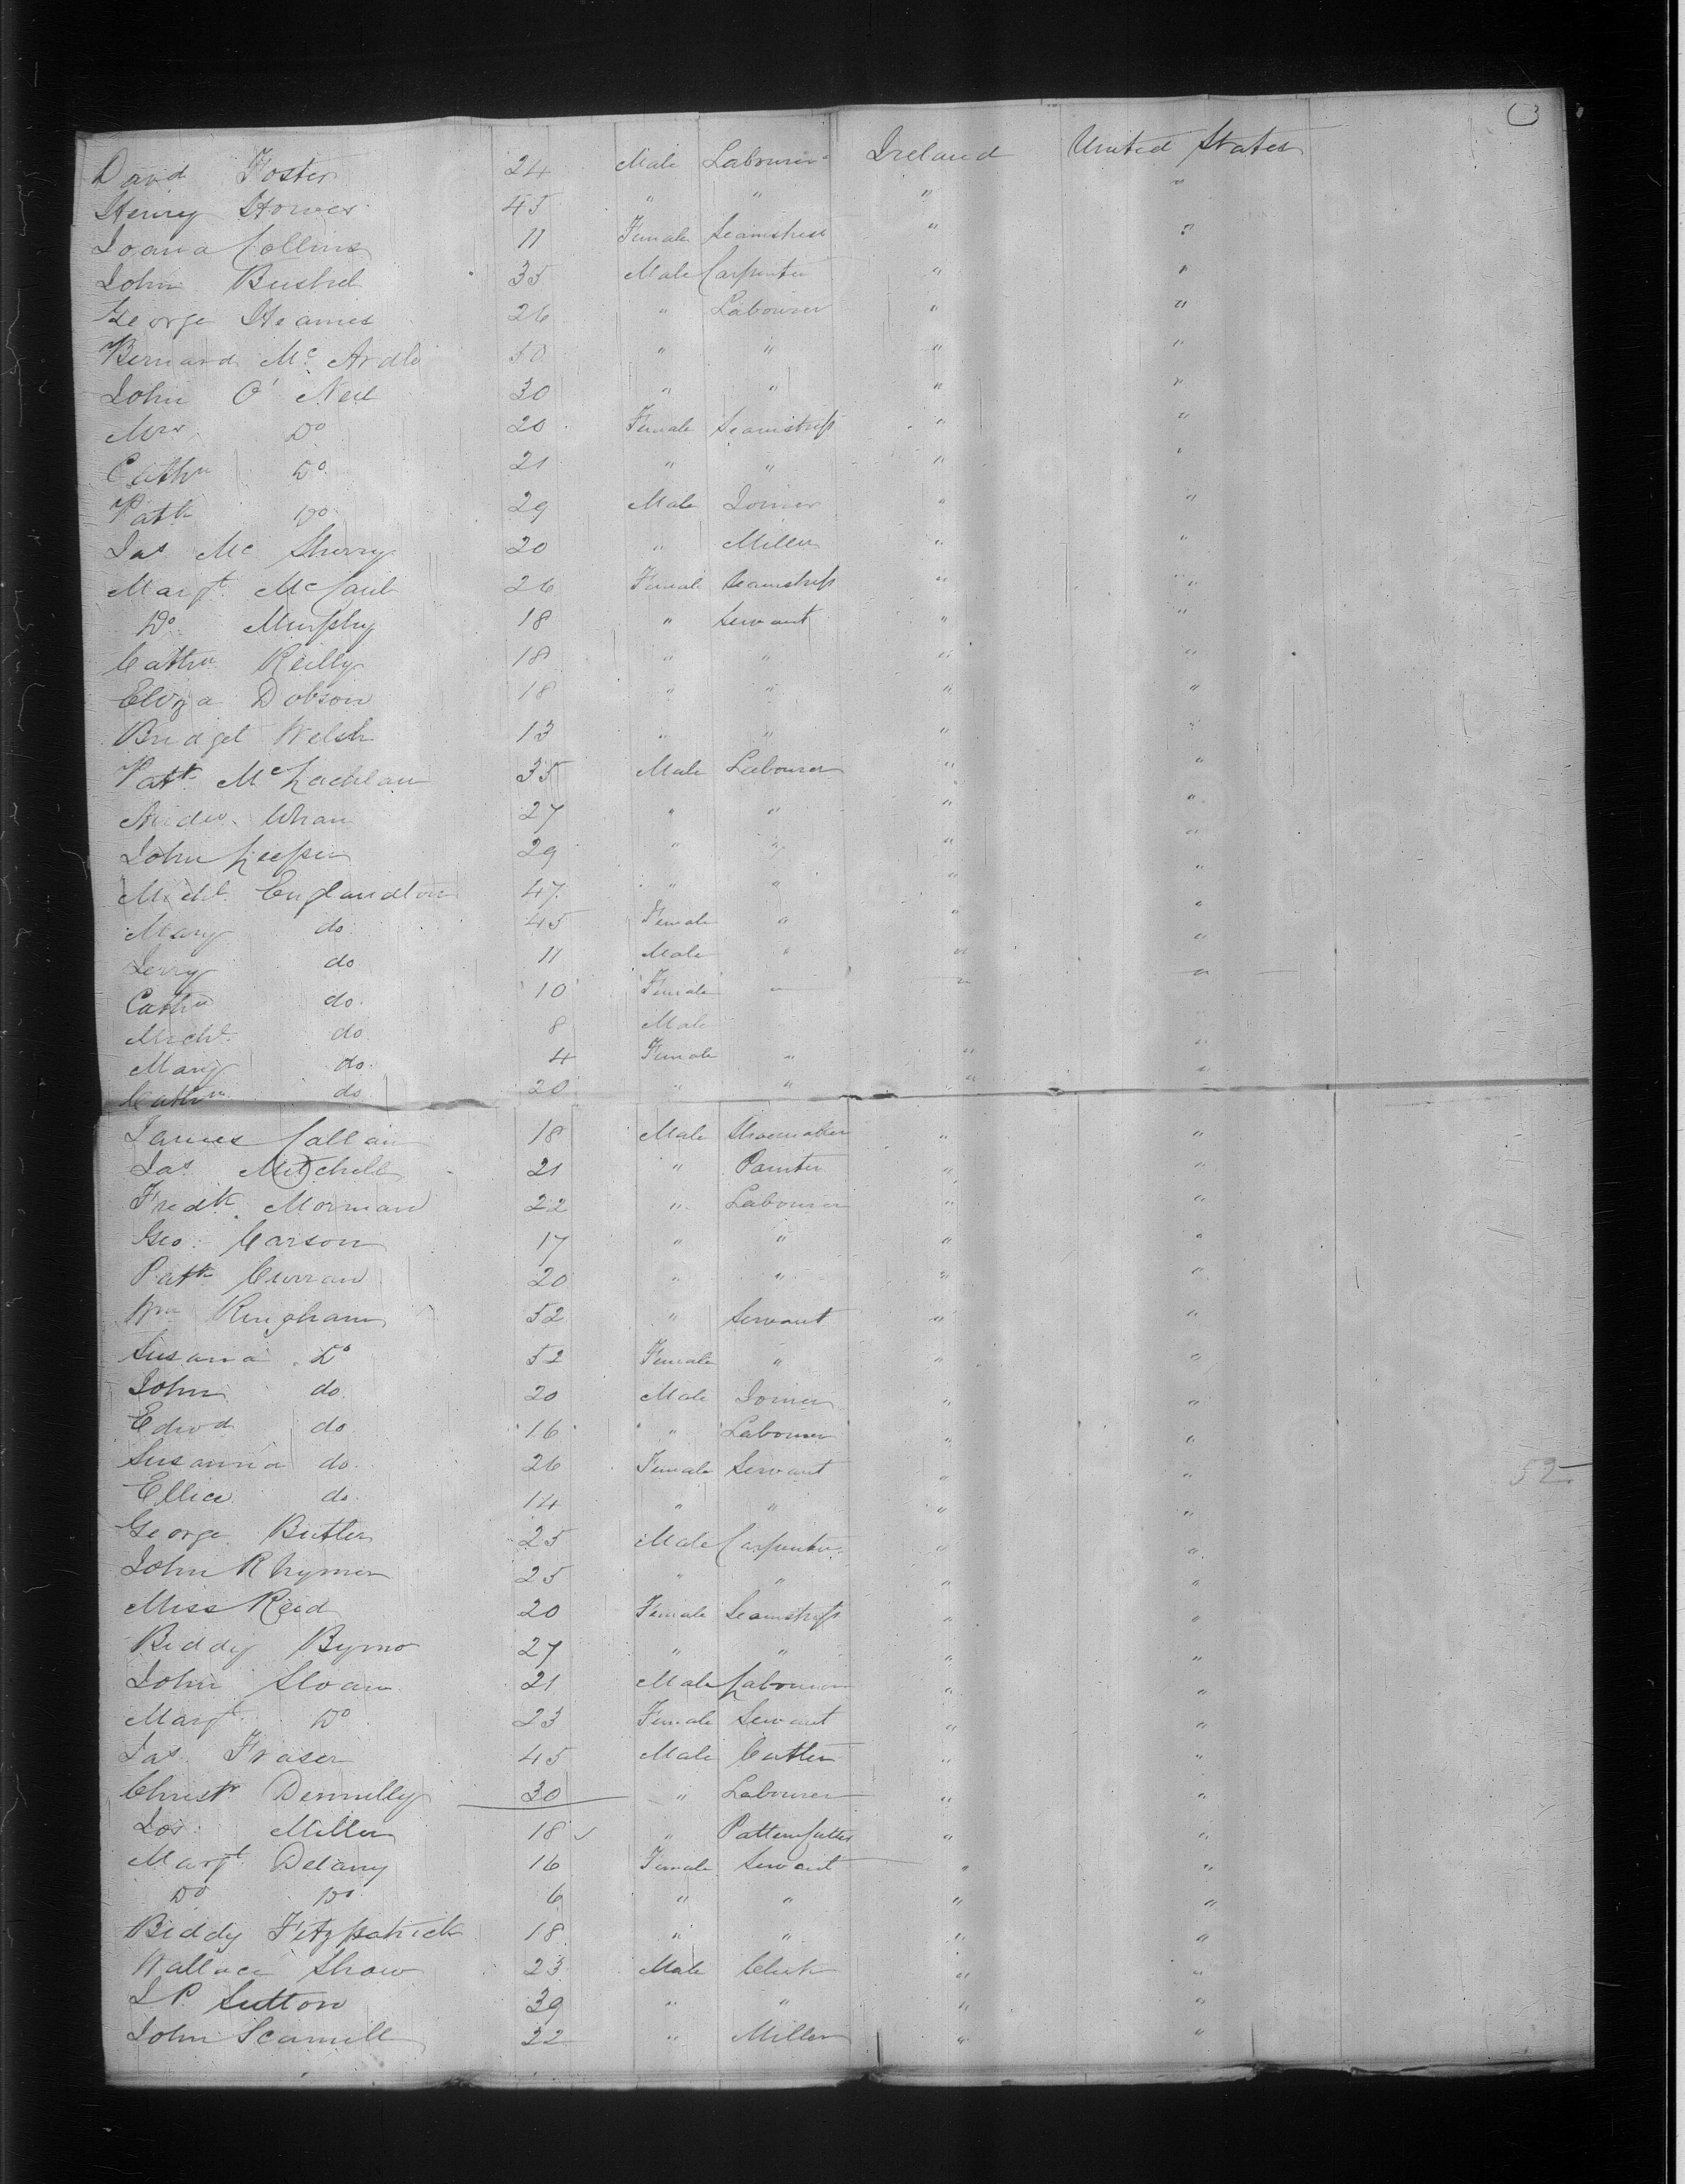 3
David Foster 24 Male Labourer Ireland United States
Henry Stower 45 " " " "
Joana Collins 11 Female Seamstress " "
John Bushel 35 Male Carpenter " "
George Heames 26 " Labourer " "
Bernard Mc Ardle 50 " " " "
John O' Neil 30 " " " "
Mrs Do 20 Female Seamstress " "
Cathn Do 21 " " " "
Patk Do 29 Male Joiner " "
Jas Mc Sherry 20 " Miller " "
Margt McCaul 26 Female Seamstress " "
Do Murphy 18 " Servant " "
Cathn Reilly 18 " " " "
Eliza Dobson 18 " " " "
Bridget Welsh 13 " " " "
Patk McLachlan 35 Male Labourer " "
Andw. Whan 27 " " " "
John 29 " " " "
Michl. Englandton 47 " " " "
Mary do 45 Female " " "
Jerry do 11 Male " " "
Cathn do 10 Female " " "
Michl do 8 Male
Mary do 4 Female " " "
Cathn do 20 " " " "
James Callan 18 Male Shoemaker " "
Jas Mitchell 21 " Painter " "
Fredk. Morman 22 " Labourer " "
Geo. Carson 17 " " " "
Patk Curran 20 " " " "
Wm Kingham 52 " Servant " "
Susana Do 52 Female " " "
John do 20 Male Joiner " "
Edwd do 16 " Labourer " "
Susanna do 26 Female Servant " "
Ellice do 14 " " " "
George Butler 25 Male Carpenter " "
John Rhymer 25 " " " "
Miss Reid 20 Female Seamstress " "
Biddy Byrne 27 " " " "
John Sloan 21 Male Labourer " "
Margt Do 23 Female Servant " "
Jas Fraser 45 Male Cutter " "
Christr Dennelly 30 " Labourer " "
Jos Miller 18 " " "
Margt Delany 16 Female Servant " "
Do Do 6 " " " "
Biddy Fitzpatrick 18 " " " "
Wallace Shaw 23 Male Clerk " "
J P. Sutton 39 " " " "
John Scamell 22 " Miller " "
52